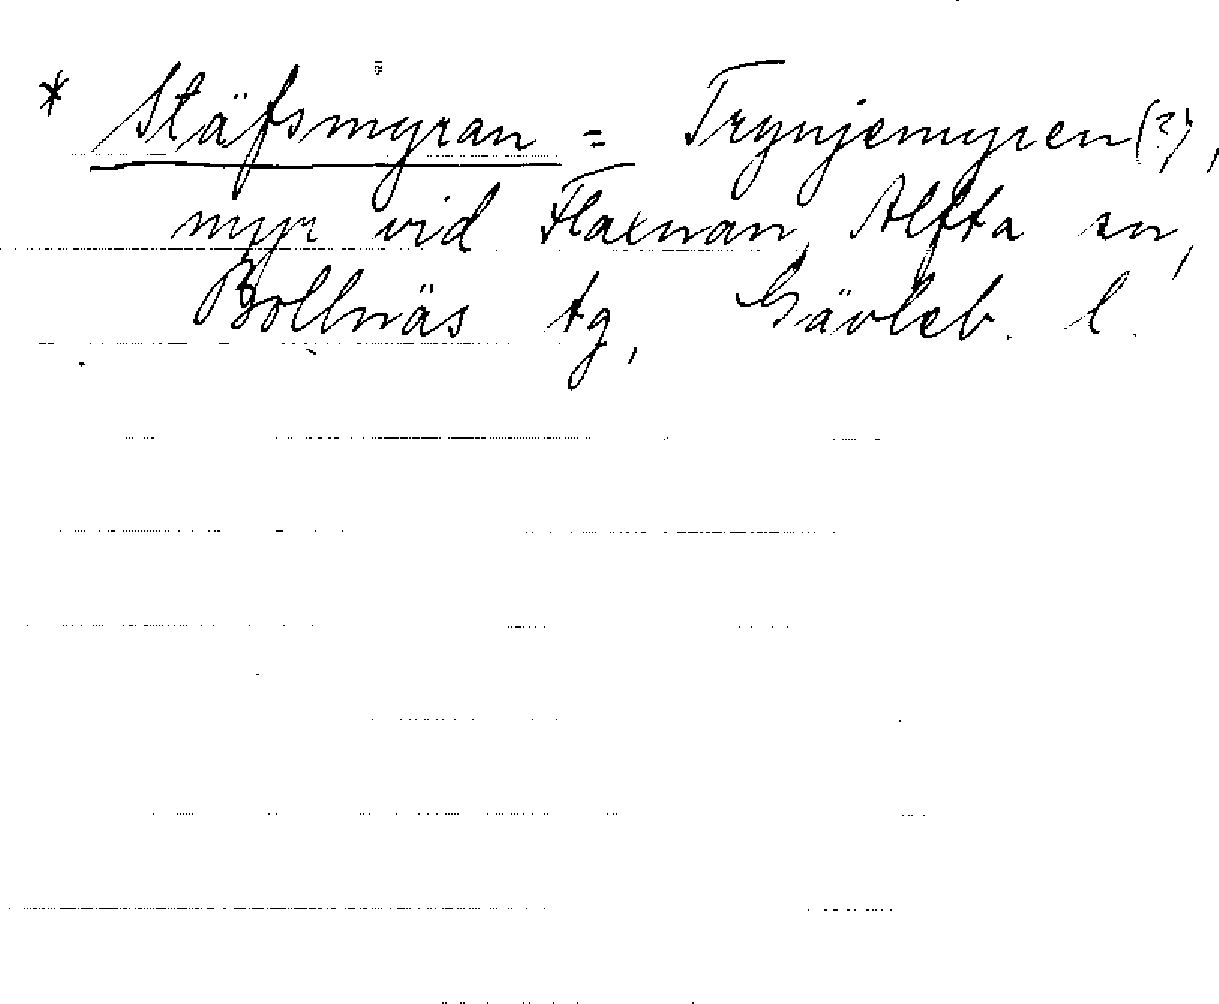 * Stäfsmyran = Trynjemyren(?),
myr vid Flaxnan, Alfta sn,
Bollnäs tg, Gävleb. l.